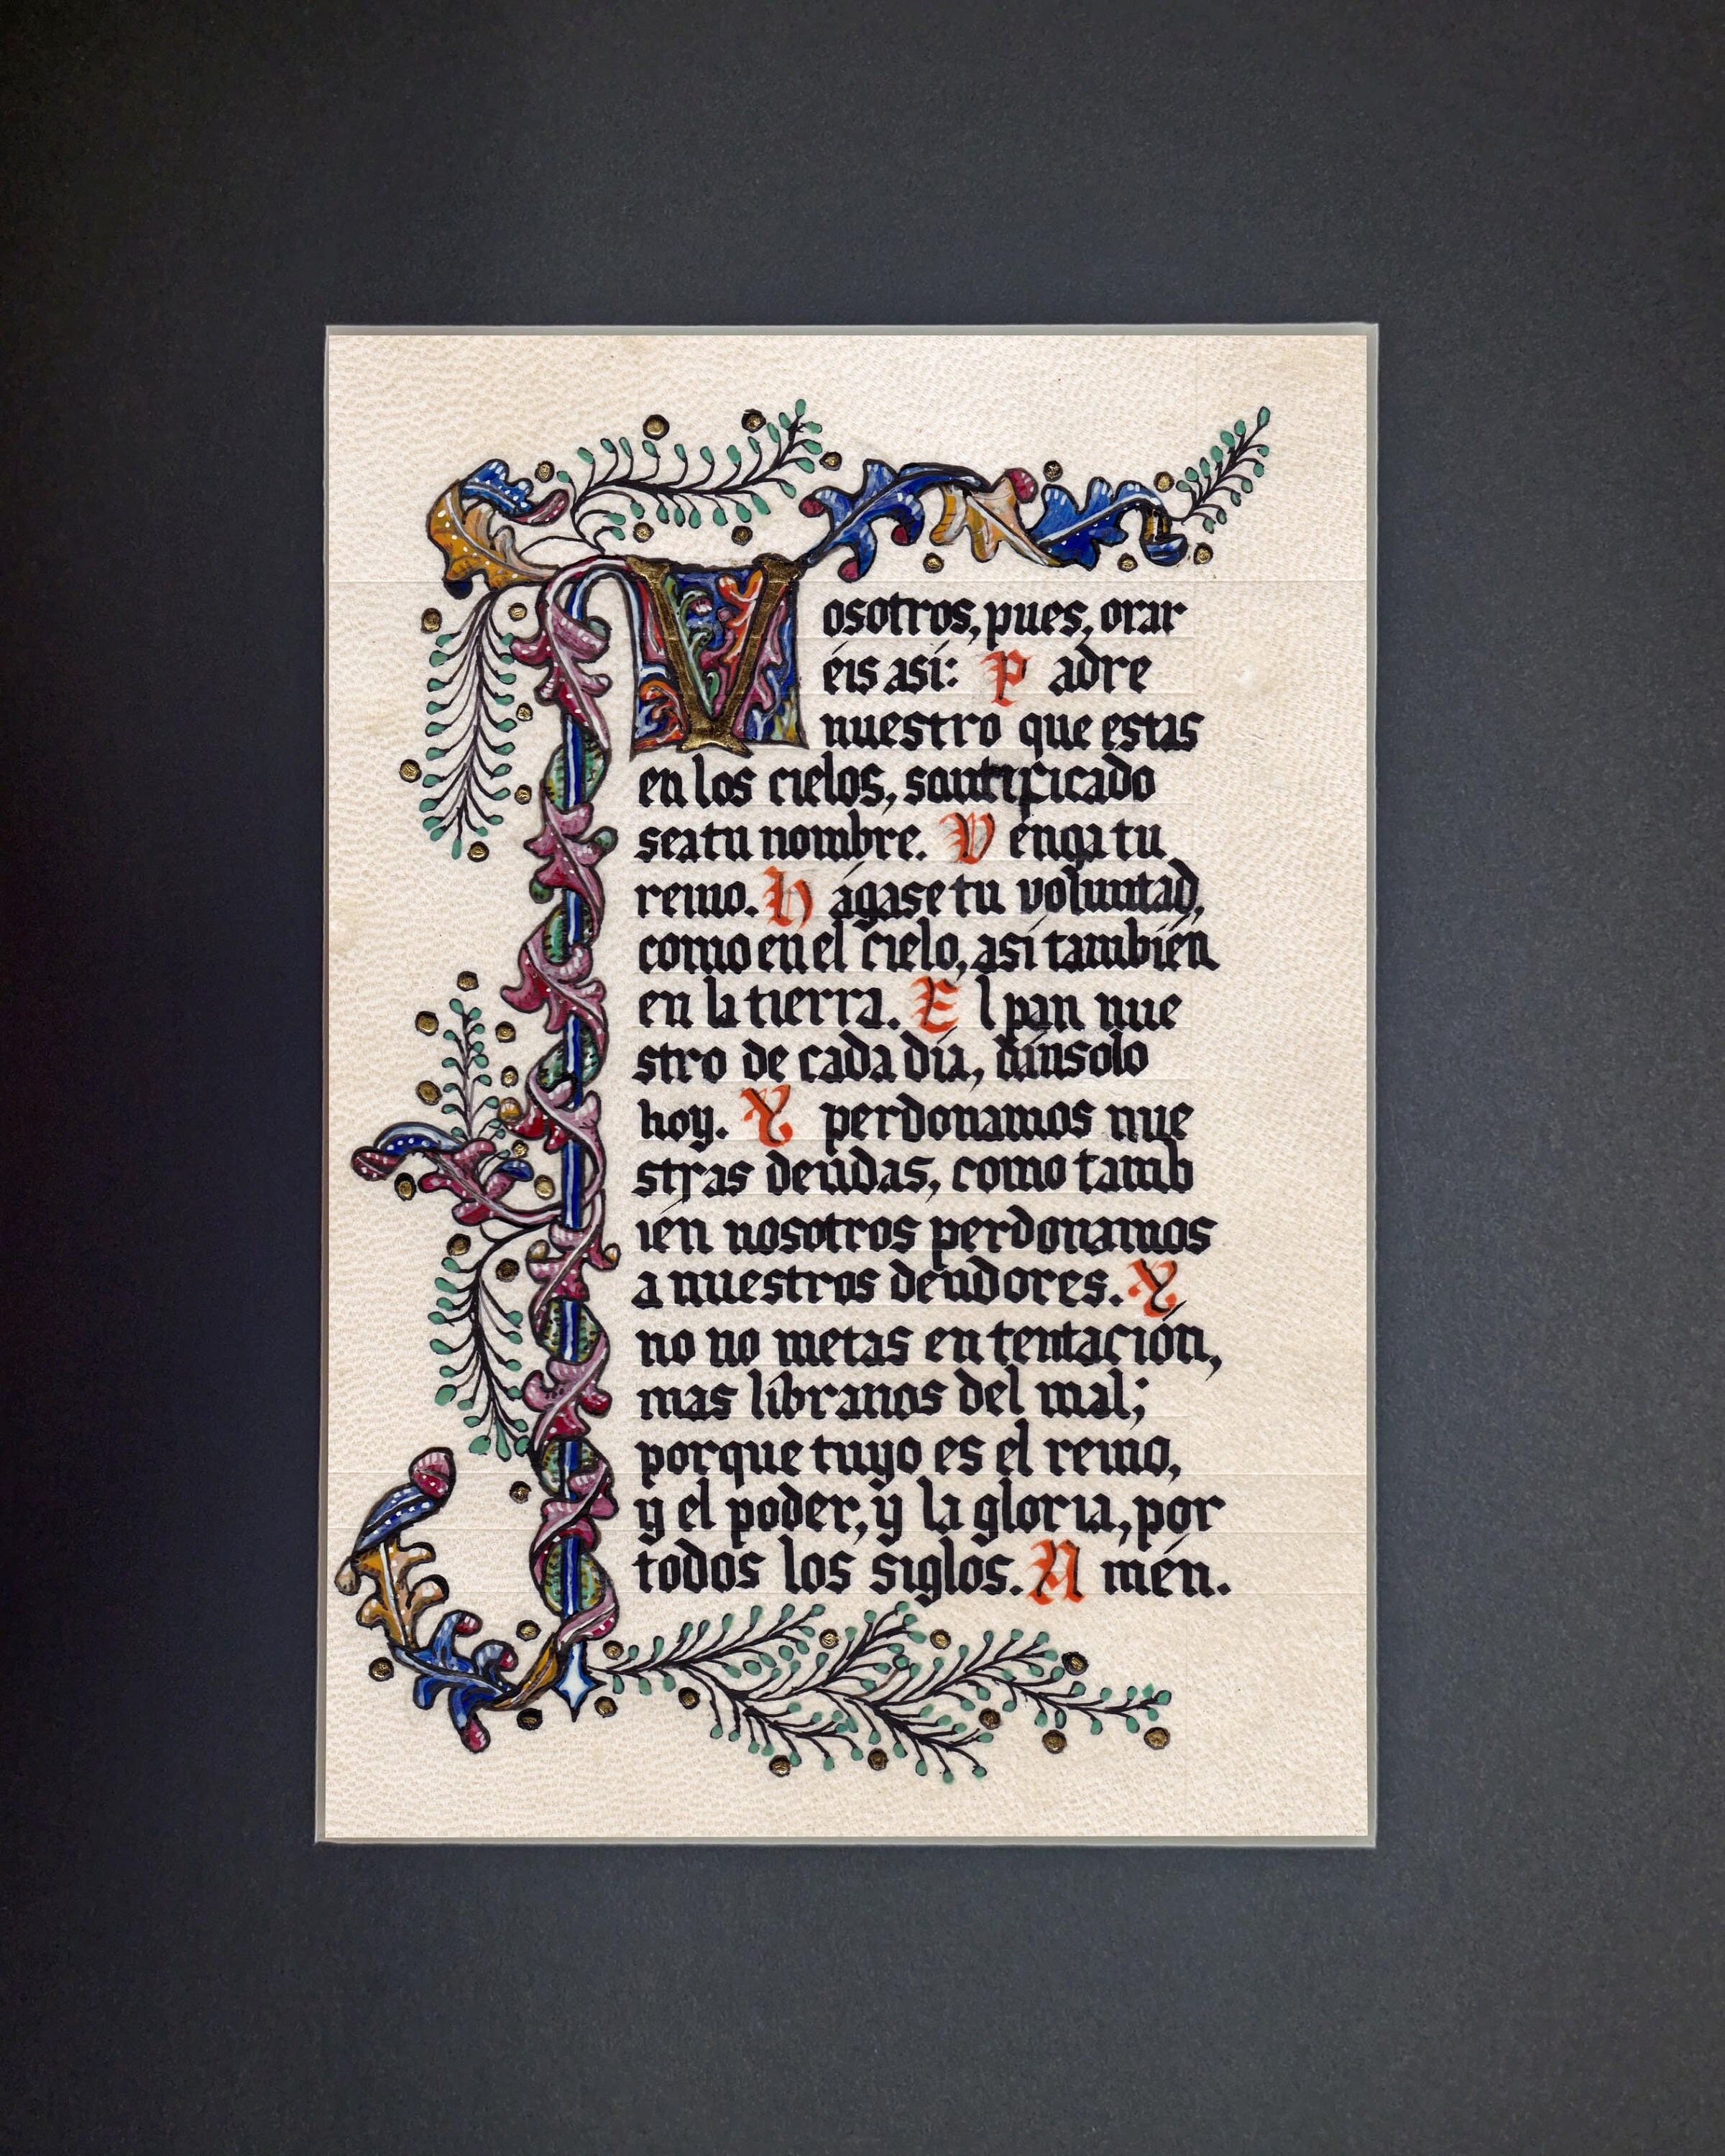 Vosotros, pues, orar
éis así: Padre
nuestro que estas
en los cielos, santificado
sea tu nombre. Venga tu
reino. Hágase tu voluntad,
como en el cielo, así también
en la tierra. El pan nue
stro de cada día, dánsolo
hoy. Y perdonamos nue
stras deudas, como tamb
ién nosotros perdonamos
a nuestros deudores. Y
no no metas en tentación,
mas líbranos del mal;
porque tuyo es el reino,
y el poder, y la gloria, por
todos los siglos. Amén.